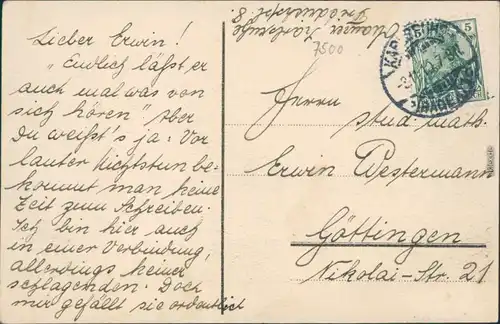 Lieber Erwin!
"Endlich läßt er
auch mal was von
sich hören" Aber
Du weißt's ja: Vor
lauter Nichtstun be-
kommt man keine
Zeit zum Schreiben.
Ich bin hier auch
in einer Verbindung,
allerdings keiner
schlagenden. Doch
mir gefällt sie ordentlich
Karlsruhe
7500
5
KARLSRUHE
(BADEN)
Herrn
stud. math.
Erwin Westermann
Göttingen
Nikolai-Str. 21